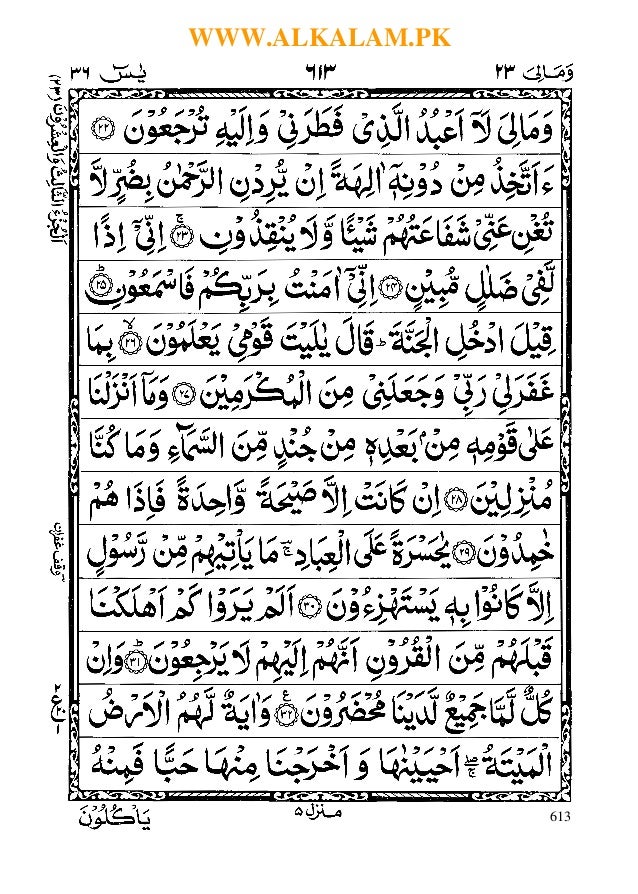 WWW.ALKALAM.PK
وَمَالِیَ ٢٣ ٦١٣ یٰسٓ ٣٦
وَمَالِیَ لَاۤ اَعْبُدُ الَّذِیْ فَطَرَنِیْ وَاِلَیْهِ تُرْجَعُوْنَ ﴿٢٢﴾
ءَاَتَّخِذُ مِنْ دُوْنِهٖۤ اٰلِهَةً اِنْ یُّرِدْنِ الرَّحْمٰنُ بِضُرٍّ لَّا
تُغْنِ عَنِّیْ شَفَاعَتُهُمْ شَیْـًٔا وَّلَا یُنْقِذُوْنِ ﴿٢٣﴾ۚ اِنِّیْۤ اِذًا
لَّفِیْ ضَلٰلٍ مُّبِیْنٍ ﴿٢٤﴾ اِنِّیْۤ اٰمَنْتُ بِرَبِّكُمْ فَاسْمَعُوْنِ ﴿٢٥﴾ؕ
قِیْلَ ادْخُلِ الْجَنَّةَ ؕ قَالَ یٰلَیْتَ قَوْمِیْ یَعْلَمُوْنَ ﴿٢٦﴾ۙ بِمَا
غَفَرَلِیْ رَبِّیْ وَجَعَلَنِیْ مِنَ الْمُكْرَمِیْنَ ﴿٢٧﴾ وَمَاۤ اَنْزَلْنَا
عَلٰی قَوْمِهٖ مِنْۢ بَعْدِهٖ مِنْ جُنْدٍ مِّنَ السَّمَآءِ وَمَا كُنَّا
مُنْزِلِیْنَ ﴿٢٨﴾ اِنْ كَانَتْ اِلَّا صَیْحَةً وَّاحِدَةً فَاِذَا هُمْ
خٰمِدُوْنَ ﴿٢٩﴾ یٰحَسْرَةً عَلَی الْعِبَادِ ۚؔ مَا یَاْتِیْهِمْ مِّنْ رَّسُوْلٍ
اِلَّا كَانُوْا بِهٖ یَسْتَهْزِءُوْنَ ﴿٣٠﴾ اَلَمْ یَرَوْا كَمْ اَهْلَكْنَا
قَبْلَهُمْ مِّنَ الْقُرُوْنِ اَنَّهُمْ اِلَیْهِمْ لَا یَرْجِعُوْنَ ﴿٣١﴾ؕ وَاِنْ
كُلٌّ لَّمَّا جَمِیْعٌ لَّدَیْنَا مُحْضَرُوْنَ ﴿٣٢﴾ۧ وَاٰیَةٌ لَّهُمُ الْاَرْضُ
الْمَیْتَةُ ۖۚ اَحْیَیْنٰهَا وَ اَخْرَجْنَا مِنْهَا حَبًّا فَمِنْهُ
یَاْكُلُوْنَ
منزل ٥
613
اَلْجُزْءُ الثَّالِثُ وَالْعِشْرُوْنَ (٢٣)
وقف غفران